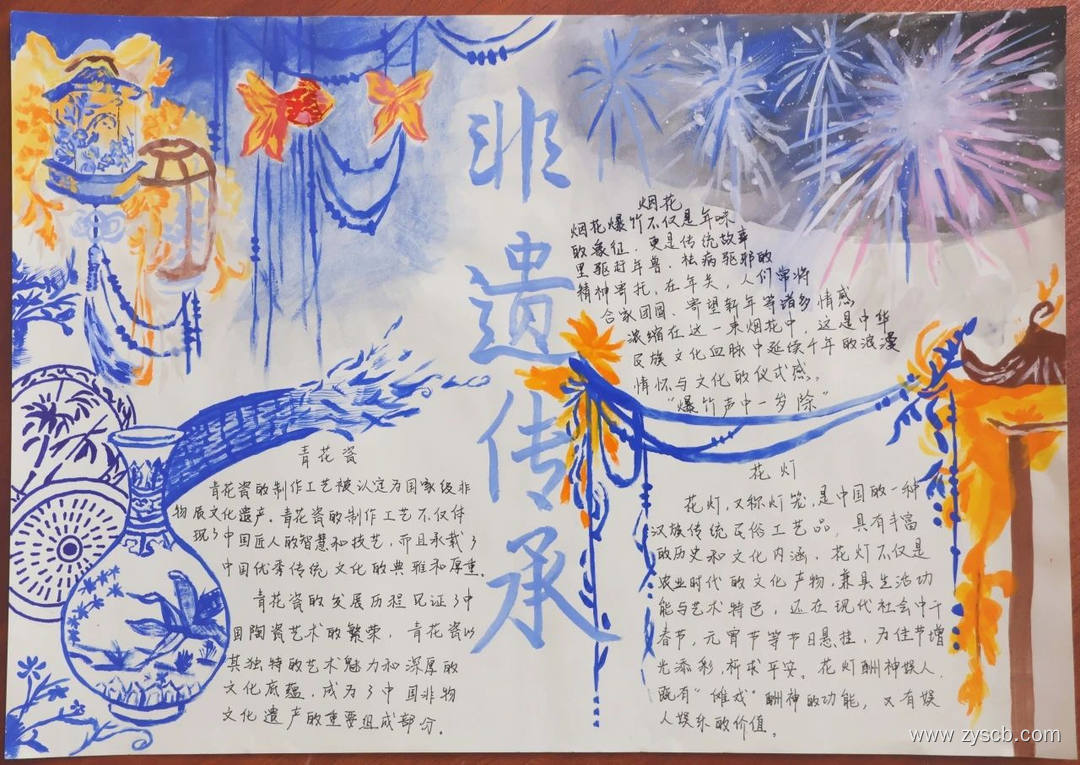 非遗传承
烟花
烟花爆竹不仅是年味
的象征,更是传统故事
里驱赶年兽、祛病驱邪的
精神寄托,在年关,人们常将
合家团圆、寄望新年等诸多情感
浓缩在这一束烟花中,这是中华
民族文化血脉中延续千年的浪漫
情怀与文化的仪式感。
“爆竹声中一岁除”
青花瓷
青花瓷的制作工艺被认定为国家级非
物质文化遗产。青花瓷的制作工艺不仅体
现了中国匠人的智慧和技艺,而且承载了
中国优秀传统文化的典雅和厚重。
青花瓷的发展历程见证了中
国陶瓷艺术的繁荣,青花瓷以
其独特的艺术魅力和深厚的
文化底蕴,成为了中国非物
文化遗产的重要组成部分。
花灯
花灯,又称灯笼,是中国的一种
汉族传统民俗工艺品,具有丰富
的历史和文化内涵,花灯不仅是
农业时代的文化产物,兼具生活功
能与艺术特色,还在现代社会中于
春节,元宵节等节日悬挂,为佳节增
光添彩,祈求平安。花灯酬神娱人,
既有“傩戏”酬神的功能,又有娱
人娱乐的价值。
www.zyscb.com